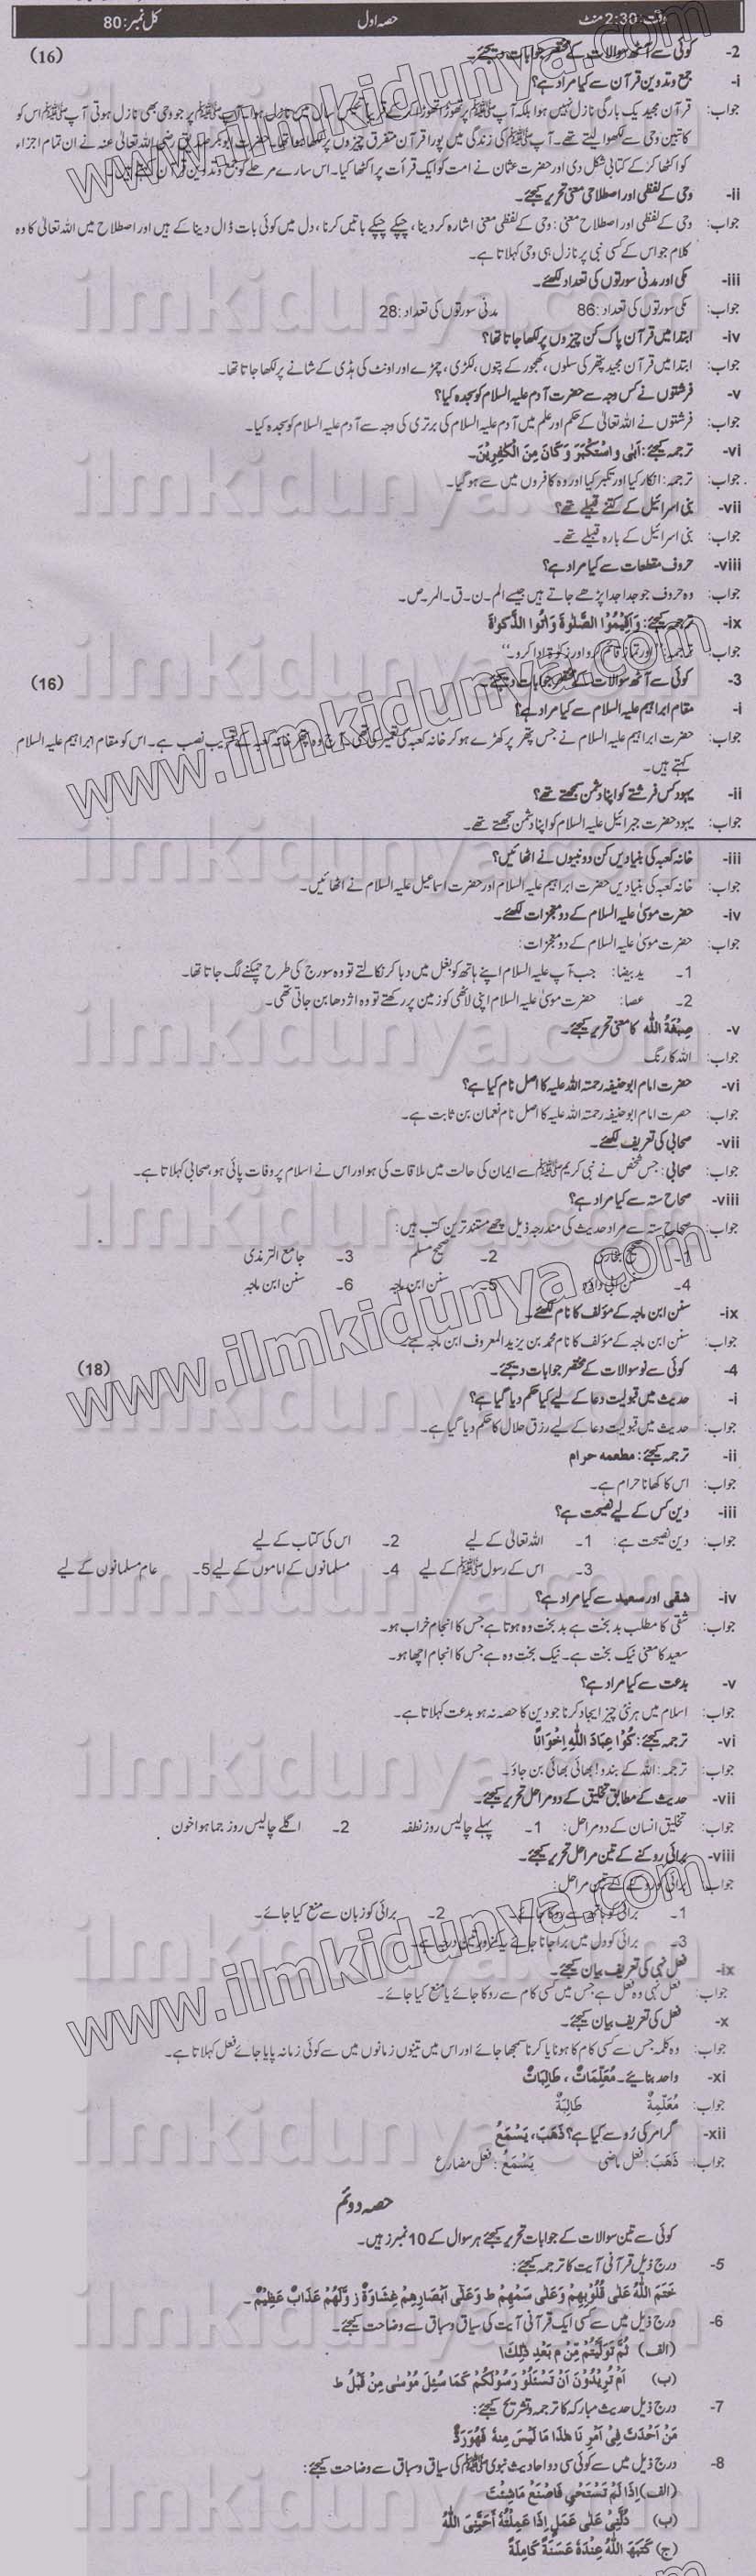 وقت: 2:30 منٹ حصہ اول کل نمبر: 80
2- کوئی سے آٹھ سوالات کے مختصر جوابات دیجئے۔ (16)
i- جمع و تدوین قرآن سے کیا مراد ہے؟
جواب: قرآن مجید یک بارگی نازل نہیں ہوا بلکہ آپ ﷺ پر تھوڑا تھوڑا کر کے سال میں نازل ہوا۔ آپ ﷺ پر جو وحی بھی نازل ہوتی آپ ﷺ اس کو
کاتبین وحی سے لکھوا لیتے تھے۔ آپ ﷺ کی زندگی میں پورا قرآن متفرق چیزوں پر لکھا ہوا تھا۔ حضرت ابوبکر صدیق رضی اللہ تعالیٰ عنہ نے ان تمام اجزاء
کو اکٹھا کر کے کتابی شکل دی اور حضرت عثمان نے امت کو ایک قرأت پر اکٹھا کیا۔ اس سارے مرحلے کو جمع و تدوین قرآن کہتے ہیں۔
ii- وحی کے لفظی اور اصطلاحی معنی تحریر کیجئے۔
جواب: وحی کے لفظی اور اصطلاح معنی: وحی کے لفظی معنی اشارہ کر دینا، چپکے چپکے باتیں کرنا، دل میں کوئی بات ڈال دینا کے ہیں اور اصطلاح میں اللہ تعالیٰ کا وہ
کلام جو اس کے کسی نبی پر نازل ہی وحی کہلاتا ہے۔
iii- مکی اور مدنی سورتوں کی تعداد لکھئے۔
جواب: مکی سورتوں کی تعداد: 86 مدنی سورتوں کی تعداد: 28
iv- ابتدا میں قرآن پاک کن چیزوں پر لکھا جاتا تھا؟
جواب: ابتدا میں قرآن مجید پتھر کی سلوں، کھجور کے پتوں، لکڑی، چمڑے اور اونٹ کی ہڈی کے شانے پر لکھا جاتا تھا۔
v- فرشتوں نے کس وجہ سے حضرت آدم علیہ السلام کو سجدہ کیا؟
جواب: فرشتوں نے اللہ تعالیٰ کے حکم اور علم میں آدم علیہ السلام کی برتری کی وجہ سے آدم علیہ السلام کو سجدہ کیا۔
vi- ترجمہ کیجئے: اَبٰى وَاسْتَكْبَرَ وَكَانَ مِنَ الْكٰفِرِيْنَ۔
جواب: ترجمہ: انکار کیا اور تکبر کیا اور وہ کافروں میں سے ہو گیا۔
vii- بنی اسرائیل کے کتنے قبیلے تھے؟
جواب: بنی اسرائیل کے بارہ قبیلے تھے۔
viii- حروف مقطعات سے کیا مراد ہے؟
جواب: وہ حروف جو جدا جدا پڑھے جاتے ہیں جیسے الم۔ن۔ق۔المر۔ص۔
ix- ترجمہ کیجئے: وَاَقِيْمُوا الصَّلٰوةَ وَاٰتُوا الذَّكٰوةَ
جواب: ترجمہ: "اور نماز قائم کرو اور زکوٰۃ ادا کرو۔"
3- کوئی سے آٹھ سوالات کے مختصر جوابات دیجئے۔ (16)
i- مقام ابراہیم علیہ السلام سے کیا مراد ہے؟
جواب: حضرت ابراہیم علیہ السلام نے جس پتھر پر کھڑے ہو کر خانہ کعبہ کی تعمیر کی تھی۔ آج وہ پتھر خانہ کعبہ کے قریب نصب ہے۔ اس کو مقام ابراہیم علیہ السلام
کہتے ہیں۔
ii- یہود کس فرشتے کو اپنا دشمن سمجھتے تھے؟
جواب: یہود حضرت جبرائیل علیہ السلام کو اپنا دشمن سمجھتے تھے۔
iii- خانہ کعبہ کی بنیادیں کن دو نبیوں نے اٹھائیں؟
جواب: خانہ کعبہ کی بنیادیں حضرت ابراہیم علیہ السلام اور حضرت اسماعیل علیہ السلام نے اٹھائیں۔
iv- حضرت موسیٰ علیہ السلام کے دو معجزات لکھئے۔
جواب: حضرت موسیٰ علیہ السلام کے دو معجزات:
1۔ ید بیضا: جب آپ علیہ السلام اپنے ہاتھ کو بغل میں دبا کر نکالتے تو وہ سورج کی طرح چمکنے لگ جاتا تھا۔
2۔ عصا: حضرت موسیٰ علیہ السلام اپنی لاٹھی کو زمین پر رکھتے تو وہ اژدھا بن جاتی تھی۔
v- صِبْغَةُ اللّٰه کا معنی تحریر کیجئے۔
جواب: اللہ کا رنگ
vi- حضرت امام ابو حنیفہ رحمتہ اللہ علیہ کا اصل نام کیا ہے؟
جواب: حضرت امام ابو حنیفہ رحمتہ اللہ علیہ کا اصل نام نعمان بن ثابت ہے۔
vii- صحابی کی تعریف لکھئے۔
جواب: صحابی: جس شخص نے نبی کریم ﷺ سے ایمان کی حالت میں ملاقات کی ہو اور اس نے اسلام پر وفات پائی ہو، صحابی کہلاتا ہے۔
viii- صحاح ستہ سے کیا مراد ہے؟
جواب: صحاح ستہ سے مراد حدیث کی مندرجہ ذیل چھے مستند ترین کتب ہیں:
1۔ صحیح بخاری 2۔ صحیح مسلم 3۔ جامع الترمذی
4۔ سنن ابی داؤد 5۔ سنن ابن ماجہ 6۔ سنن ابن ماجہ
ix- سنن ابن ماجہ کے مؤلف کا نام لکھئے۔
جواب: سنن ابن ماجہ کے مؤلف کا نام محمد بن یزید المعروف ابن ماجہ ہے۔
4- کوئی سے نو سوالات کے مختصر جوابات دیجئے۔ (18)
i- حدیث میں قبولیت دعا کے لیے کیا حکم دیا گیا ہے؟
جواب: حدیث میں قبولیت دعا کے لیے رزق حلال کا حکم دیا گیا ہے۔
ii- ترجمہ کیجئے: مطعمه حرام
جواب: اس کا کھانا حرام ہے۔
iii- دین کس کے لیے نصیحت ہے؟
جواب: دین نصیحت ہے: 1۔ اللہ تعالیٰ کے لیے 2۔ اس کی کتاب کے لیے
3۔ اس کے رسول ﷺ کے لیے 4۔ مسلمانوں کے اماموں کے لیے 5۔ عام مسلمانوں کے لیے
iv- شقی اور سعید سے کیا مراد ہے؟
جواب: شقی کا مطلب بد بخت ہے بد بخت وہ ہوتا ہے جس کا انجام خراب ہو۔
سعید کا معنی نیک بخت ہے۔ نیک بخت وہ ہے جس کا انجام اچھا ہو۔
v- بدعت سے کیا مراد ہے؟
جواب: اسلام میں ہر نئی چیز ایجاد کرنا جو دین کا حصہ نہ ہو بدعت کہلاتا ہے۔
vi- ترجمہ کیجئے: كُوْا عِبَادَ اللّٰهِ اِخْوَانًا
جواب: ترجمہ: اللہ کے بندو! بھائی بھائی بن جاؤ۔
vii- حدیث کے مطابق تخلیق کے دو مراحل تحریر کیجئے۔
جواب: تخلیق انسان کے دو مراحل: 1۔ پہلے چالیس روز نطفہ 2۔ اگلے چالیس روز جما ہوا خون
viii- برائی روکنے کے تین مراحل تحریر کیجئے۔
جواب: برائی کو روکنے کے تین مراحل:
1۔ برائی کو ہاتھ سے روکا جائے۔ 2۔ برائی کو زبان سے منع کیا جائے۔
3۔ برائی کو دل میں برا جانا جائے یہ کمزور ترین درجہ ہے۔
ix- فعل نہی کی تعریف بیان کیجئے۔
جواب: فعل نہی وہ فعل ہے جس میں کسی کام سے روکا جائے یا منع کیا جائے۔
x- فعل کی تعریف بیان کیجئے۔
جواب: وہ کلمہ جس سے کسی کام کا ہونا یا کرنا سمجھا جائے اور اس میں تینوں زمانوں میں سے کوئی زمانہ پایا جائے فعل کہلاتا ہے۔
xi- واحد بنائیے۔ مُعَلِّمَاتٌ ، طَالِبَاتٌ
جواب: مُعَلِّمَةٌ طَالِبَةٌ
xii- گرامر کی رُو سے کیا ہے؟ ذَهَبَ، يَسْمَعُ
جواب: ذَهَبَ: فعل ماضی يَسْمَعُ: فعل مضارع
حصہ دوئم
کوئی سے تین سوالات کے جوابات تحریر کیجئے ہر سوال کے 10 نمبرز ہیں۔
5- درج ذیل قرآنی آیت کا ترجمہ کیجئے:
خَتَمَ اللّٰهُ عَلٰى قُلُوْبِهِمْ وَعَلٰى سَمْعِهِمْ ط وَعَلٰٓى اَبْصَارِهِمْ غِشَاوَةٌ ز وَّلَهُمْ عَذَابٌ عَظِيْمٌ۔
6- درج ذیل میں سے کسی ایک قرآنی آیت کی سیاق و سباق سے وضاحت کیجئے۔
(الف) ثُمَّ تَوَلَّيْتُمْ مِّنْ م بَعْدِ ذٰلِكَ
(ب) اَمْ تُرِيْدُوْنَ اَنْ تَسْئَلُوْ رَسُوْلَكُمْ كَمَا سُئِلَ مُوْسٰى مِنْ قَبْلُ ط
7- درج ذیل حدیث مبارکہ کا ترجمہ و تشریح کیجئے:
مَنْ اَحْدَثَ فِىْ اَمْرِ نَا هٰذَا مَا لَيْسَ مِنْهُ فَهُوَ رَدٌّ
8- درج ذیل میں سے کوئی سی دو احادیث نبوی ﷺ کی سیاق و سباق سے وضاحت کیجئے:
(الف) اِذَا لَمْ تَسْتَحْىِ فَاصْنَعْ مَا شِئْتَ
(ب) دُلَّنِىْ عَلٰى عَمَلٍ اِذَا عَمِلْتُهُ اَحَبَّنِىَ اللّٰهُ
(ج) كَتَبَهَا اللّٰهُ عِنْدَهُ حَسَنَةً كَامِلَةً
www.ilmkidunya.com
ilmkidunya.com